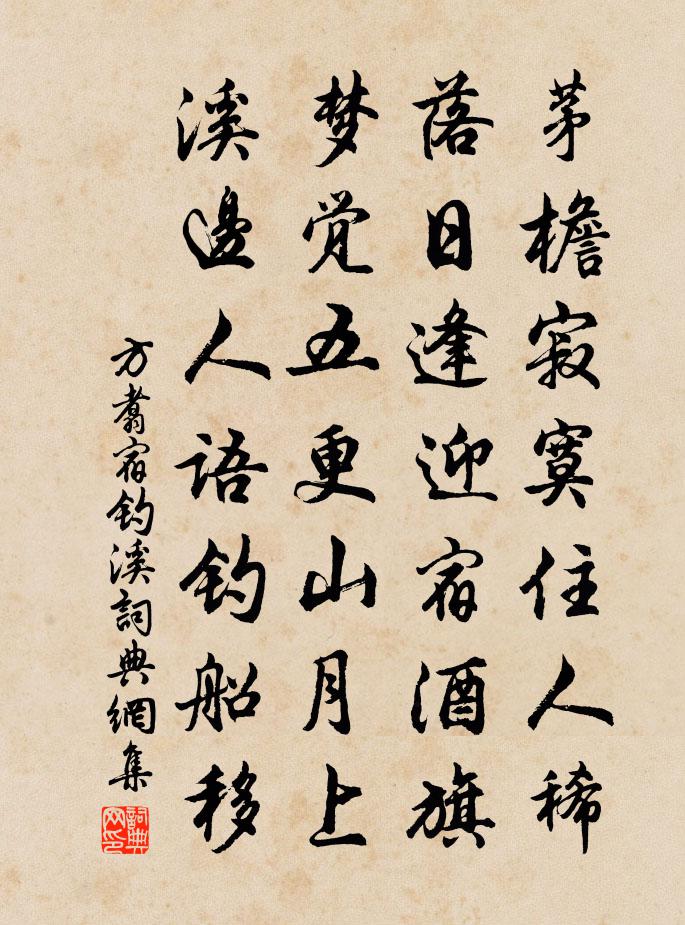 茅檐寂寞住人稀
落日逢迎宿酒旗
梦觉五更山月上
溪邊人语钓船移
方翥宿钓溪詞典網集
詞典网印